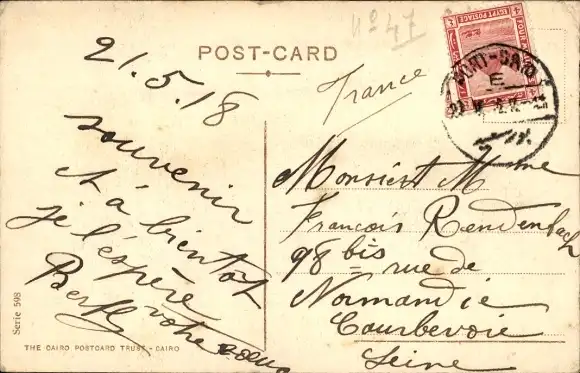 POST-CARD
No 47
France
21.5.18
souvenir
et à bientôt
je l'espère
votre soeur
Berthe
Monsieur Mme
François Rendenbach
98 bis rue de
Normandie
Courbevoie
Seine
EGYPT POSTAGE
PORT-SAID
E
Serie 598
THE CAIRO POSTCARD TRUST - CAIRO